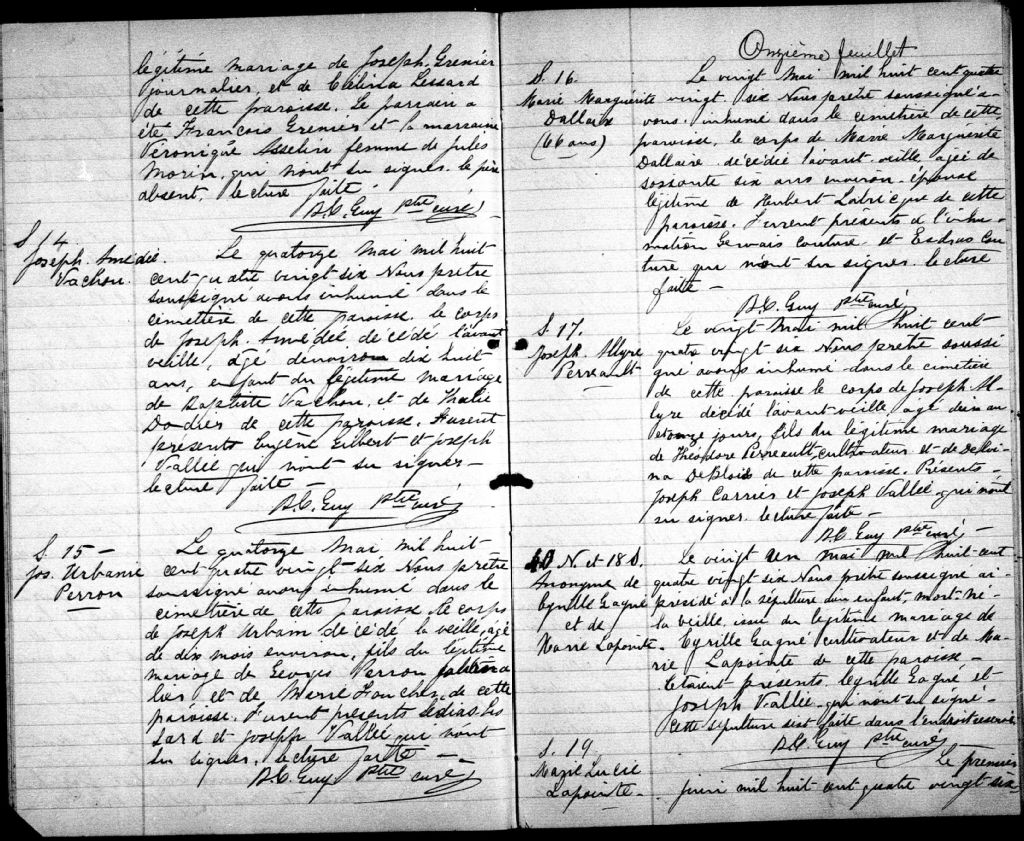 légitime mariage de Joseph Grenier
journalier, et de Célina Lessard
de cette paroisse. Le parrain a
été François Grenier et la marraine
Véronique Asselin femme de Jules
Morin, qui n'ont su signer. le père
absent, lecture faite
B.C. Guy Ptre curé
S. 14
Joseph. Amédée
Vachon.
Le quatorze Mai mil huit
cent quatre vingt six Nous prêtre
soussigné avons inhumé dans le
cimetière de cette paroisse le corps
de Joseph. Amédée décédé l'avant
veille, âgé d'environ dix huit
ans, enfant du légitime mariage
de Baptiste Vachon, et de
Dodier de cette paroisse. Furent
présents Eugène Gilbert et Joseph
Vallée qui n'ont su signer -
lecture faite -
B.C. Guy Ptre curé
S. 15 -
Jos. Urbanie
Perron
Le quatorze Mai mil huit
cent quatre vingt six Nous prêtre
soussigné avons inhumé dans le
cimetière de cette paroisse le corps
de Joseph Urbain décédé la veille, âgé
de dix mois environ, fils du légitime
mariage de Georges Perron
et de Marie de cette
paroisse. Furent présents
et Joseph Vallée qui n'ont
su signer. lecture faite -
B.C. Guy Ptre curé
Onzième feuillet
S. 16.
Marie Marguérite
Dallaire
(66 ans)
Le vingt Mai mil huit cent quatre
vingt. six Nous prêtre soussigné a-
vons. inhumé dans le cimetière de cette
paroisse, le corps de Marie Marguérite
Dallaire. décédée l'avant. veille, âgée de
soixante six ans environ. épouse
légitime de Hubert de cette
paroisse. Furent présents à l'inhu-
mation Gervais Couture et Esdras Cou
ture qui n'ont su signer. lecture
faite -
B.C. Guy Ptre curé
S. 17.
Joseph Allyre
Perreault
Le vingt Mai mil huit cent
quatre vingt six Nous prêtre soussi
gné avons inhumé dans le cimetière
de cette paroisse le corps de Joseph Al-
lyre décédé l'avant-veille âgé d'un an
et onze jours, fils du légitime mariage
de Théodore Perreault, cultivateur et de
DeBlois de cette paroisse. Présents -
Joseph Carrier et Joseph Vallée qui n'ont
su signer. lecture faite -
B.C. Guy Ptre curé -
N. et 18 S.
Anonyme de
Cyrille Gagné
et de
Marie Lapointe.
Le vingt un mai mil huit cent
quatre vingt six Nous prêtre soussigné a-
présidé à la sépulture d'un enfant mort-né
la veille, issu du légitime mariage de
Cyrille Gagné cultivateur et de Ma-
rie Lapointe de cette paroisse -
Etaient présents Cyrille Gagné et
Joseph Vallée qui n'ont su signé.
Cette sépulture s'est faite dans l'endroit reservé
B.C. Guy Ptre curé
S. 19
Marie Lucie
Lapointe -
Le premier
juin mil huit cent quatre vingt six